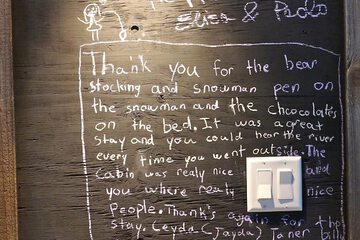 Elise & Paolo
Thank you for the bear
stocking and snowman pen on
the snowman and the chocolates
on the bed. It was a great
stay and you could hear the river
every time you went outside. The
Cabin was realy nice and
you where realy nice
People. Thank's again for the
stay. Ceyda (Jayda) Taner